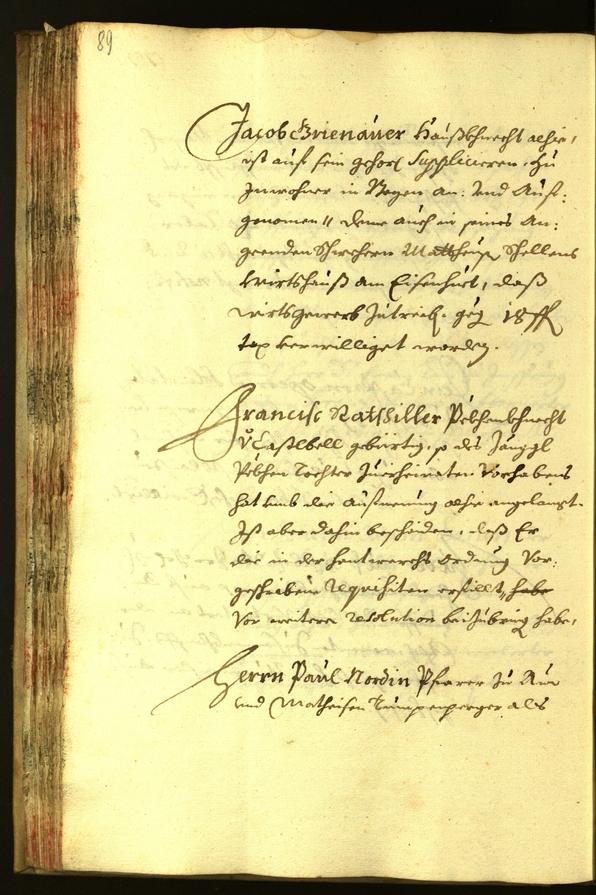 89
Jacob Grienauer Haußkhnecht alhie,
ist auf sein gehors. Supplicieren, zu
Inwohner in Bozen an: und Auf-
genomen, deme auch in seines An-
geenden Schwehern Mattheusen Schellens
Wirtshauß am Eisenhuet, daß
Wirtsgewerb zutreib. geg. 18 f.
tax verwilliget worden.
Francisc Ratschiller Pekhenkhnecht
v. Castlbell gebürtig, so des
Pekhen Tochter zuerheiraten Vorhabens
hat umb die Aufnemung alhie angelangt.
Ist aber dahin bescheiden, daß Er
die in der Hantwerchs Ordnung Vor-
geschribene requisiten erfillt, habe
Vor weitere resolution beizubring habe.
Herrn Paul Nordin Pfarrer zu Aur
und Matheisen als